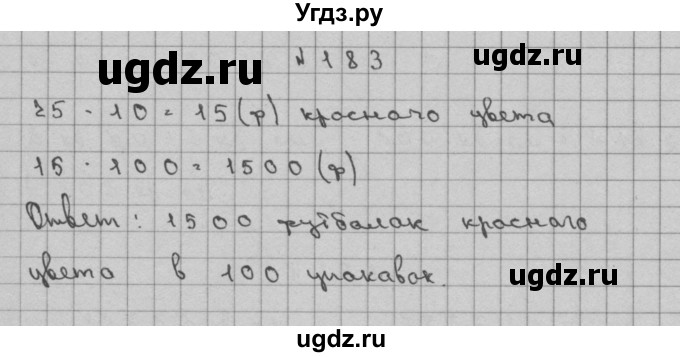 Угдз.ру
ugdz.ru
ugdz.ru
№183
25 - 10 = 15 (ф) красного цвета
15 · 100 = 1500 (ф)
Ответ: 1500 футболак краснаго
цвета в 100 упакавок.
ugdz.ru
ugdz.ru